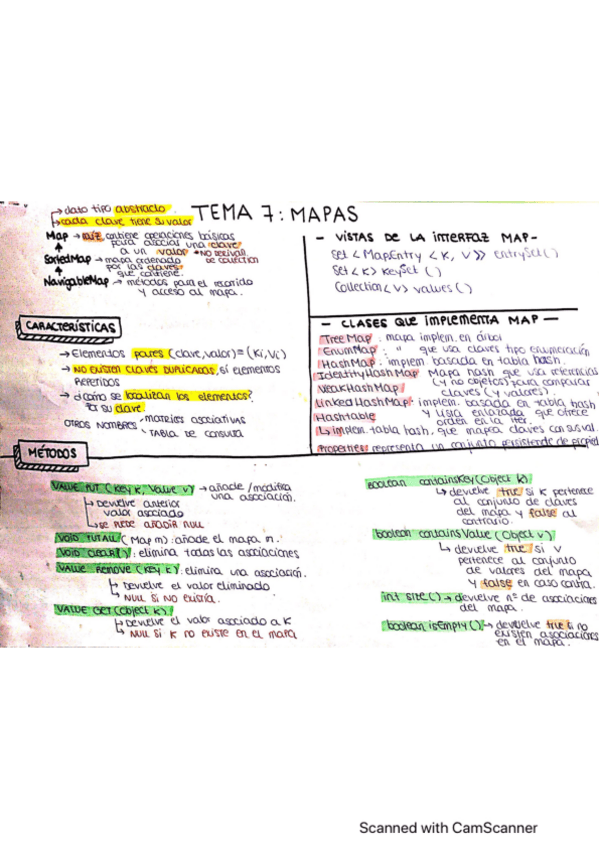 TEMA 7: MAPAS
→ dato tipo abstracto.
→ cada clave tiene su valor
Map → raíz contiene operaciones básicas
para asociar una clave
a un valor *NO derivar
de collection
SortedMap → mapa ordenado
por las claves
que contiene.
NavigableMap → métodos para el recorrido
y acceso al mapa.
- VISTAS DE LA INTERFAZ MAP -
Set < MapEntry < K, V >> entrySet()
Set <K> KeySet ()
Collection <V> values ()
CARACTERÍSTICAS
→ Elementos pares (clave, valor) = (Ki, Vi)
→ NO EXISTEN CLAVES DUPLICADAS, SÍ ELEMENTOS
REPETIDOS
→ ¿Cómo se localizan los elementos?
Por su clave.
OTROS NOMBRES - MATRICES ASOCIATIVAS
- TABLA DE CONSULTA
- CLASES QUE IMPLEMENTA MAP -
TreeMap : mapa implem. en árbol
EnumMap : " que usa claves tipo enumeración
HashMap : implem. basada en tabla hash.
IdentityHashMap Mapa hash que usa referencias
WeakHashMap (y no objetos) para comparar
claves (y valores).
LinkedHashMap: implem. basada en tabla hash
Hashtable y lista enlazada que ofrece
orden en la iter.
↳ implem. tabla hash, que mapea claves con sus val.
Properties representa un conjunto persistente de propied
MÉTODOS
VALUE PUT (Key K, Value V) → añade/modifica
una asociación.
↳ Devuelve anterior
valor asociado
↳ SE PUEDE AÑADIR NULL
VOID PUTALL (Map m) : añade el mapa n.
VOID CLEAR() : elimina todas las asociaciones
VALUE REMOVE (Key K) : elimina una asociación.
↳ Devuelve el valor eliminado
↳ NULL SI NO EXISTÍA.
VALUE GET (Object K)
↳ Devuelve el valor asociado a K
↳ NULL SI K NO EXISTE EN EL MAPA
boolean containsKey (Object K)
↳ devuelve true si K pertenece
al conjunto de claves
del mapa y false al
contrario.
boolean containsValue (Object V)
↳ devuelve true si V
pertenece al conjunto
de valores del mapa
y false en caso contra.
int size() → devuelve nº de asociaciones
del mapa.
boolean isEmpty() → devuelve true si no
existen asociaciones
en el mapa.
Scanned with CamScanner